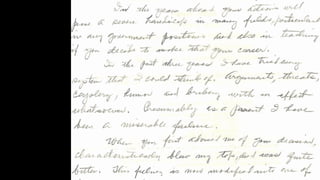 In the years ahead your actions will
pose a severe handicap in many fields, particularly
in any government positions and also in teaching
if you decide to make that your career.
In the past three years I have tried every
system that I could think of. Arguments, threats,
cajolery, humor and bribery with no effect
whatsoever. Presumably as a parent I have
been a miserable failure.
When you first advised me of your decision,
characteristically blew my top, and was quite
bitter. This feeling is now modified into one of